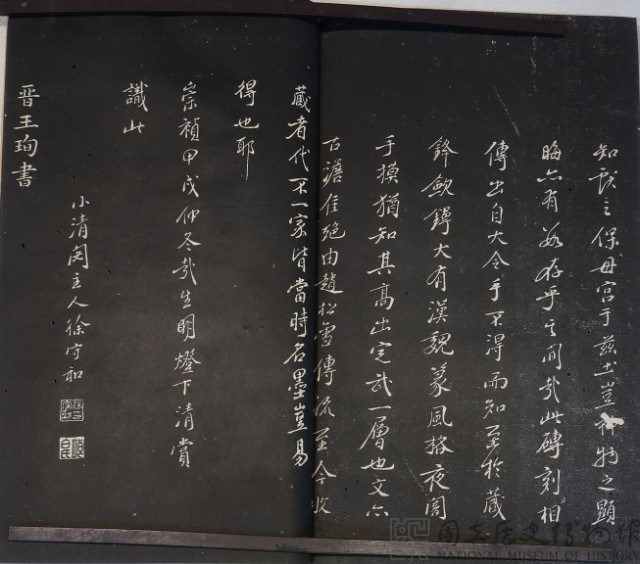 知献之保母宫于兹土岂神物之顯
晦亦有数存乎其间哉此磚刻相
傳出自大令手不得而知至於藏
鋒斂鍔大有漢魏篆風格夜闇
手摸猶知其高出定武一層也文亦
古澹佳絶由趙松雪傳流至今收
藏者代不一家皆當時名墨豈易
得也耶
崇禎甲戌仲冬哉生明燈下清賞
識此
小清閟主人徐守和
晋王珣書
国立歷史博物館
NATIONAL MUSEUM OF HISTORY